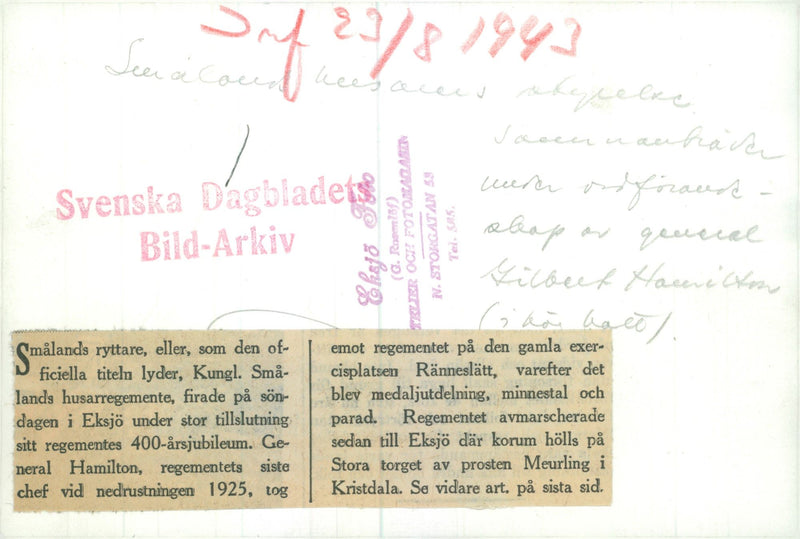 23/8 1943
styrelse
sammanträder
under ordförande-
skap av general
Gilbert Hamilton
(i hög hatt)
Svenska Dagbladets
Bild-Arkiv
Eksjö Foto
(G. Rosenlöf)
ATELIER OCH FOTOMAGASIN
N. STORGATAN 53
Tel. 595.
Smålands ryttare, eller, som den of-
ficiella titeln lyder, Kungl. Små-
lands husarregemente, firade på sön-
dagen i Eksjö under stor tillslutning
sitt regementes 400-årsjubileum. Ge-
neral Hamilton, regementets siste
chef vid nedrustningen 1925, tog
emot regementet på den gamla exer-
cisplatsen Ränneslätt, varefter det
blev medaljutdelning, minnestal och
parad. Regementet avmarscherade
sedan till Eksjö där korum hölls på
Stora torget av prosten Meurling i
Kristdala. Se vidare art. på sista sid.